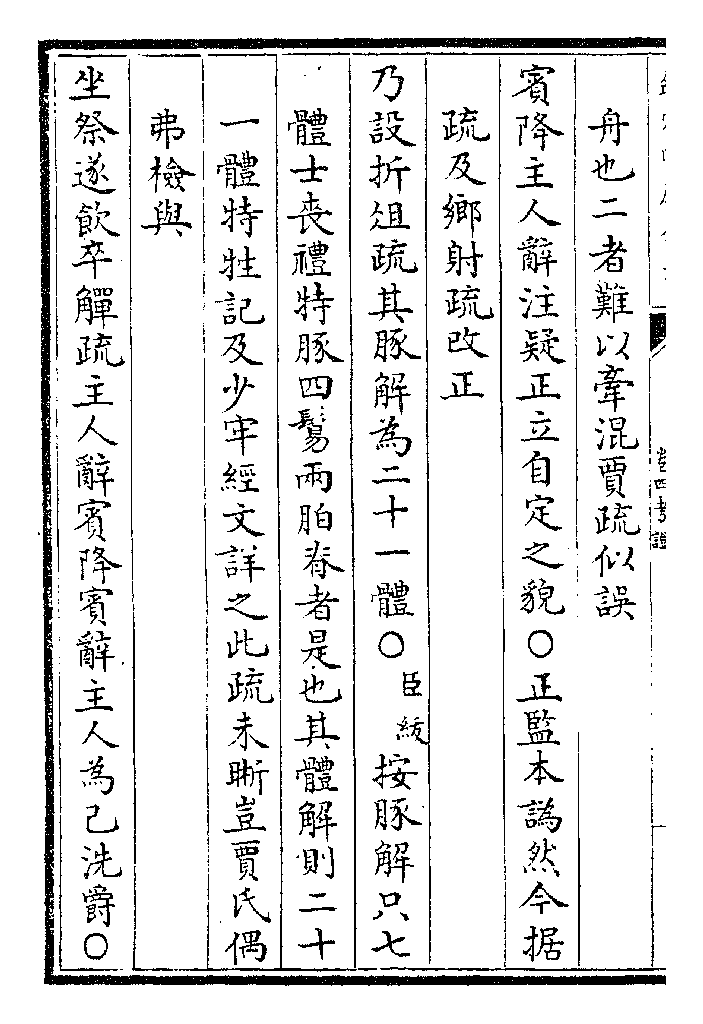 舟也二者難以牽混賈疏似誤
賓降主人辭注疑正立自定之貌○正監本譌然今据
疏及鄉射疏改正
乃設折俎疏其豚解為二十一體○臣紱按豚解只七
體士喪禮特豚四鬄兩胉脊者是也其體解則二十
一體特牲記及少牢經文詳之此疏未晰豈賈氏偶
弗檢與
坐祭遂飲卒觶疏主人辭賓降賓辭主人為己洗爵○